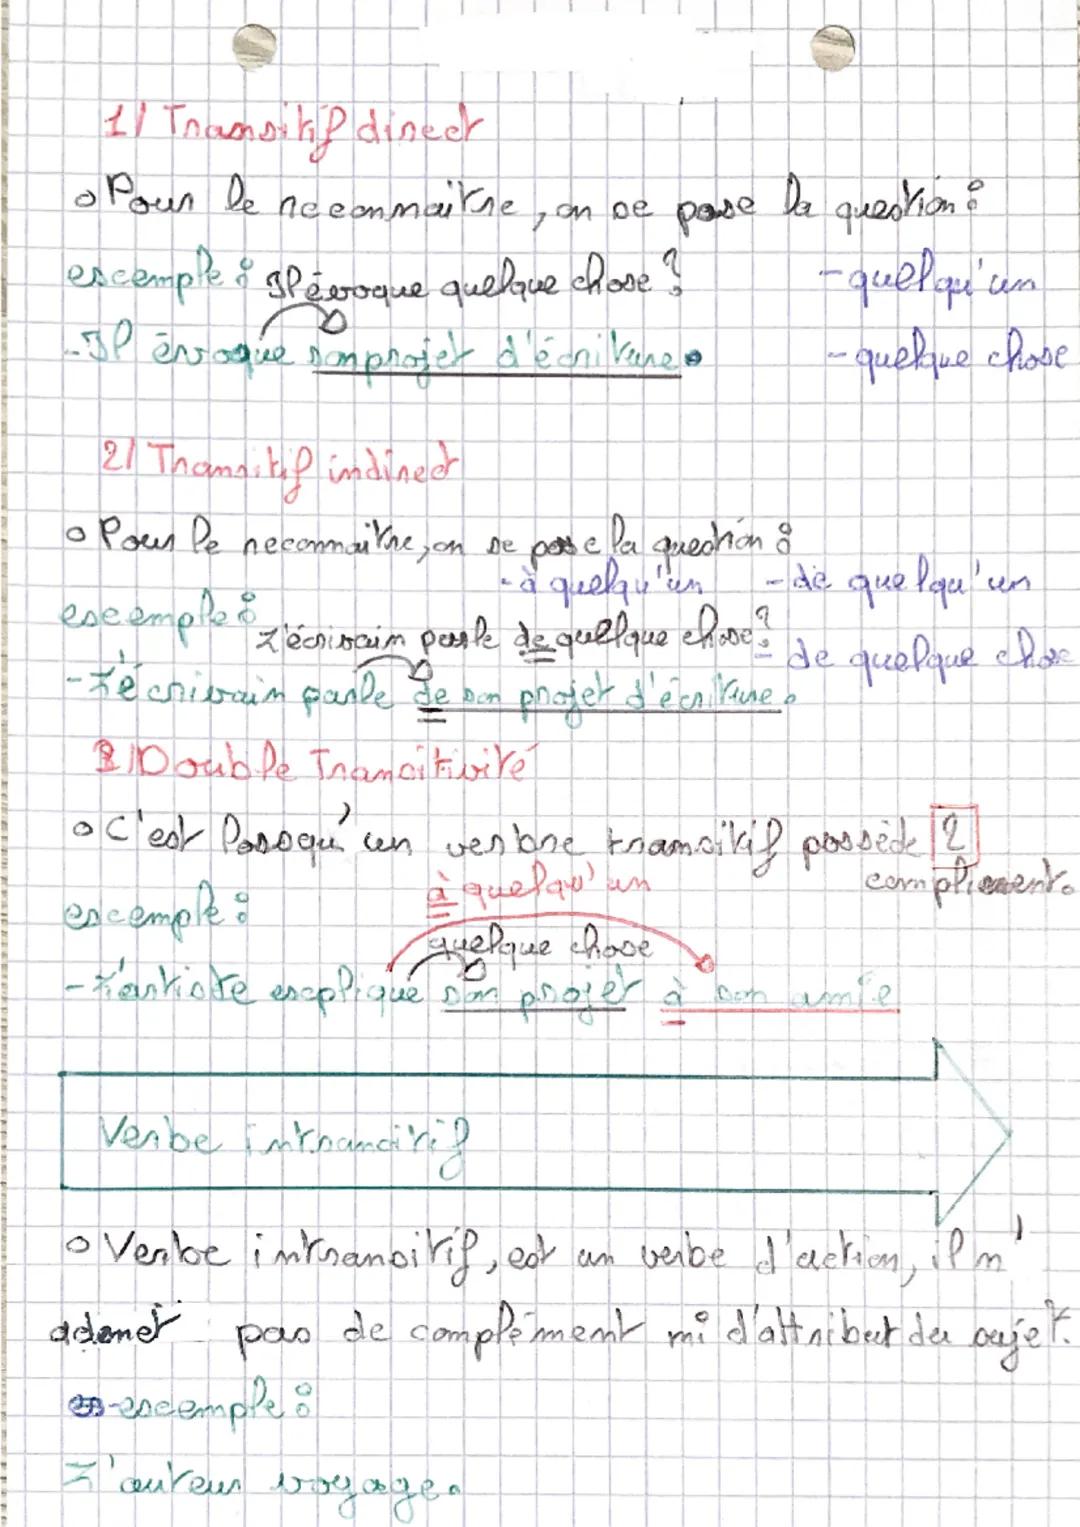 1/ Transitif direct
Pour le reconnaitre, on se pose la question :
exemple : Il évoque quelque chose ? - quelqu'un
- Il évoque son projet d'écriture. - quelque chose
2/ Transitif indirect
Pour le reconnaitre, on se pose la question :
- à quelqu'un - de quelqu'un
exemple : L'écrivain parle de quelque chose ? - de quelque chose
- L'écrivain parle de son projet d'écriture.
3/ Double Transitivité
C'est lorsqu'un verbe transitif possède 2
compliment.
à quelqu'un
exemple :
quelque chose
- L'artiste explique son projet à son amie
Verbe intransitif
Verbe intransitif, est un verbe d'action, il n'
admet pas de complément ni d'attribut du sujet.
exemple :
L'auteur voyage.